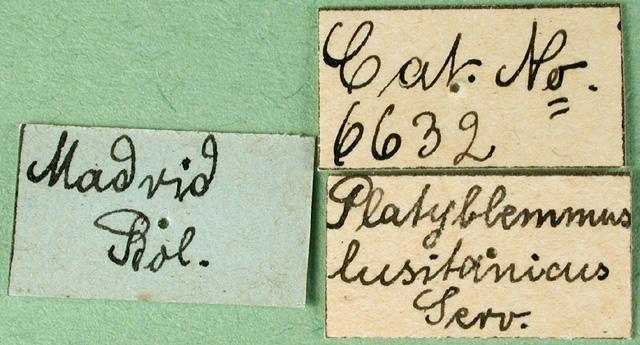 Madrid
Bol.
Cat. No.
6632
Platyblemmus
lusitanicus
Serv.